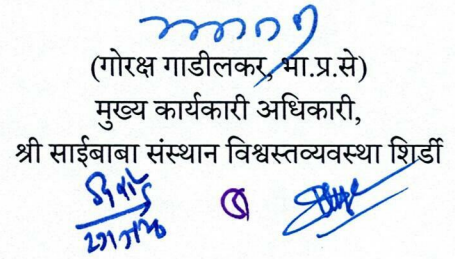 (गोरक्ष गाडीलकर, भा.प्र.से)
मुख्य कार्यकारी अधिकारी,
श्री साईबाबा संस्थान विश्वस्तव्यवस्था शिर्डी